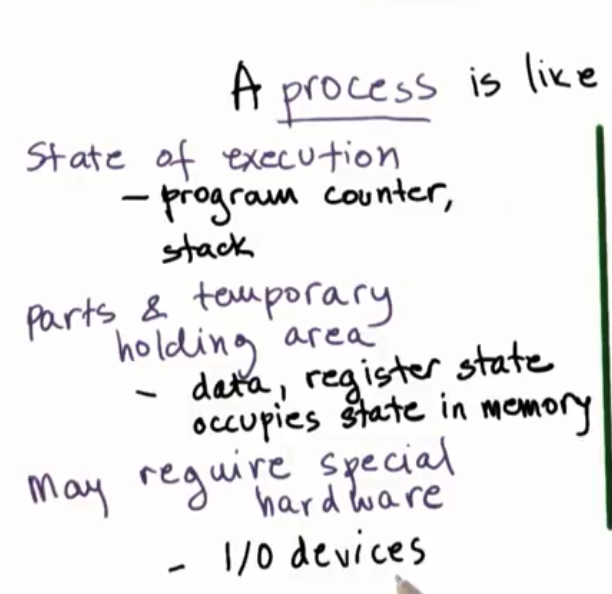 A process is like
State of execution
- program counter,
stack
Parts & temporary
holding area
- data, register state
occupies state in memory
May require special
hardware
- I/O devices